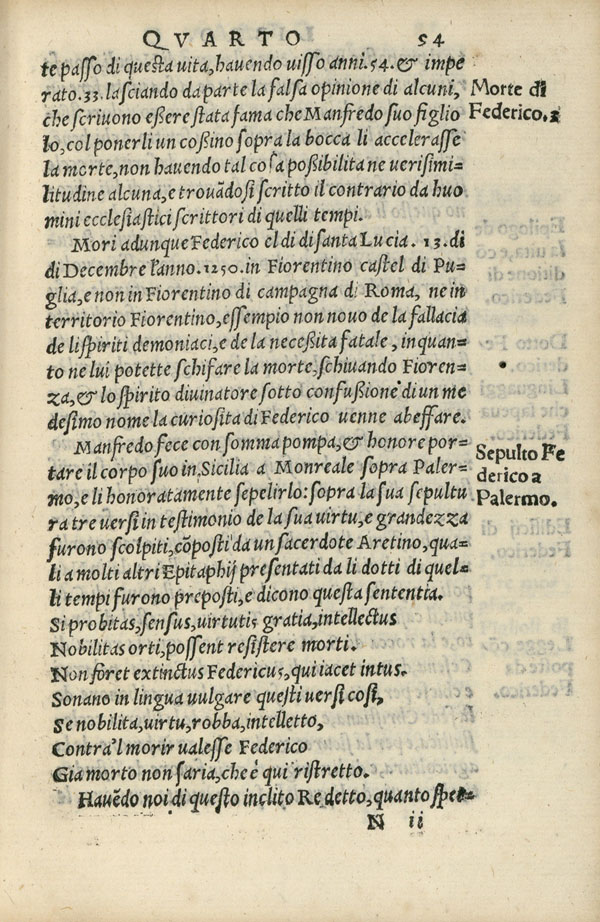 QVARTO 54
te passo di questa vita, havendo visso anni. 54. & impe
rato. 33. lasciando da parte la falsa opinione di alcuni,
che scrivono eßere stata fama che Manfredo suo figlio
lo, col ponerli un coßino sopra la bocca li accelerasse
la morte, non havendo tal cosa poßibilita ne verisimi-
litudine alcuna, e trovãdosi scritto il contrario da huo
mini ecclesiastici scrittori di quelli tempi.
Morte di
Federico.
Mori adunque Federico el di di santa Lucia. 13. di
di Decembre l'anno. 1250. in Fiorentino castel di Pu-
glia, e non in Fiorentino di campagna di Roma, ne in
territorio Fiorentino, essempio non novo de la fallacia
de li spiriti demoniaci, e de la neceßita fatale, in quan-
to ne lui potette schifare la morte, schivando Fioren-
za, & lo spirito divinatore sotto confusione di un me
desimo nome la curiosita di Federico venne a beffare.
Manfredo fece con somma pompa, & honore por-
tare il corpo suo in Sicilia a Monreale sopra Paler-
mo, e li honoratamente sepelirlo: sopra la sua sepultu
ra tre versi in testimonio de la sua virtu, e grandezza
furono scolpiti, cõposti da un sacerdote Aretino, qua-
li a molti altri Epitaphij presentati da li dotti di quel-
li tempi furono preposti, e dicono questa sententia.
Sepulto Fe
derico a
Palermo.
Si probitas, sensus, virtutis gratia, intellectus
Nobilitas orti, possent resistere morti.
Non foret extinctus Federicus, qui iacet intus.
Sonano in lingua vulgare questi versi cosi,
Se nobilita, virtu, robba, intelletto,
Contra'l morir valesse Federico
Gia morto non saria, che è qui ristretto.
Havẽdo noi di questo inclito Re detto, quanto spet-
N ii